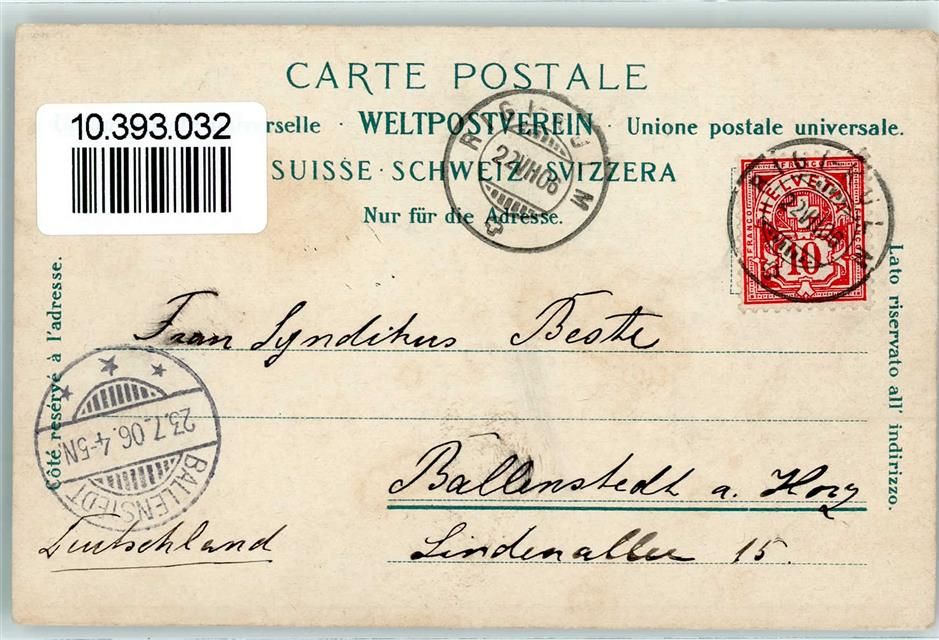 CARTE POSTALE
10.393.032
erselle · WELTPOSTVEREIN · Unione postale universale.
SUISSE · SCHWEIZ · SVIZZERA
Nur für die Adresse.
RIGI KULM
22 VII 06
HELVETIA
FRANCO
10
Côté réservé à l'adresse.
Lato riservato all' indirizzo.
Frau Syndikus Beste
23.7.06.4-5N
BALLENSTEDT
Ballenstedt a. Harz
Deutschland
Lindenallee 15.